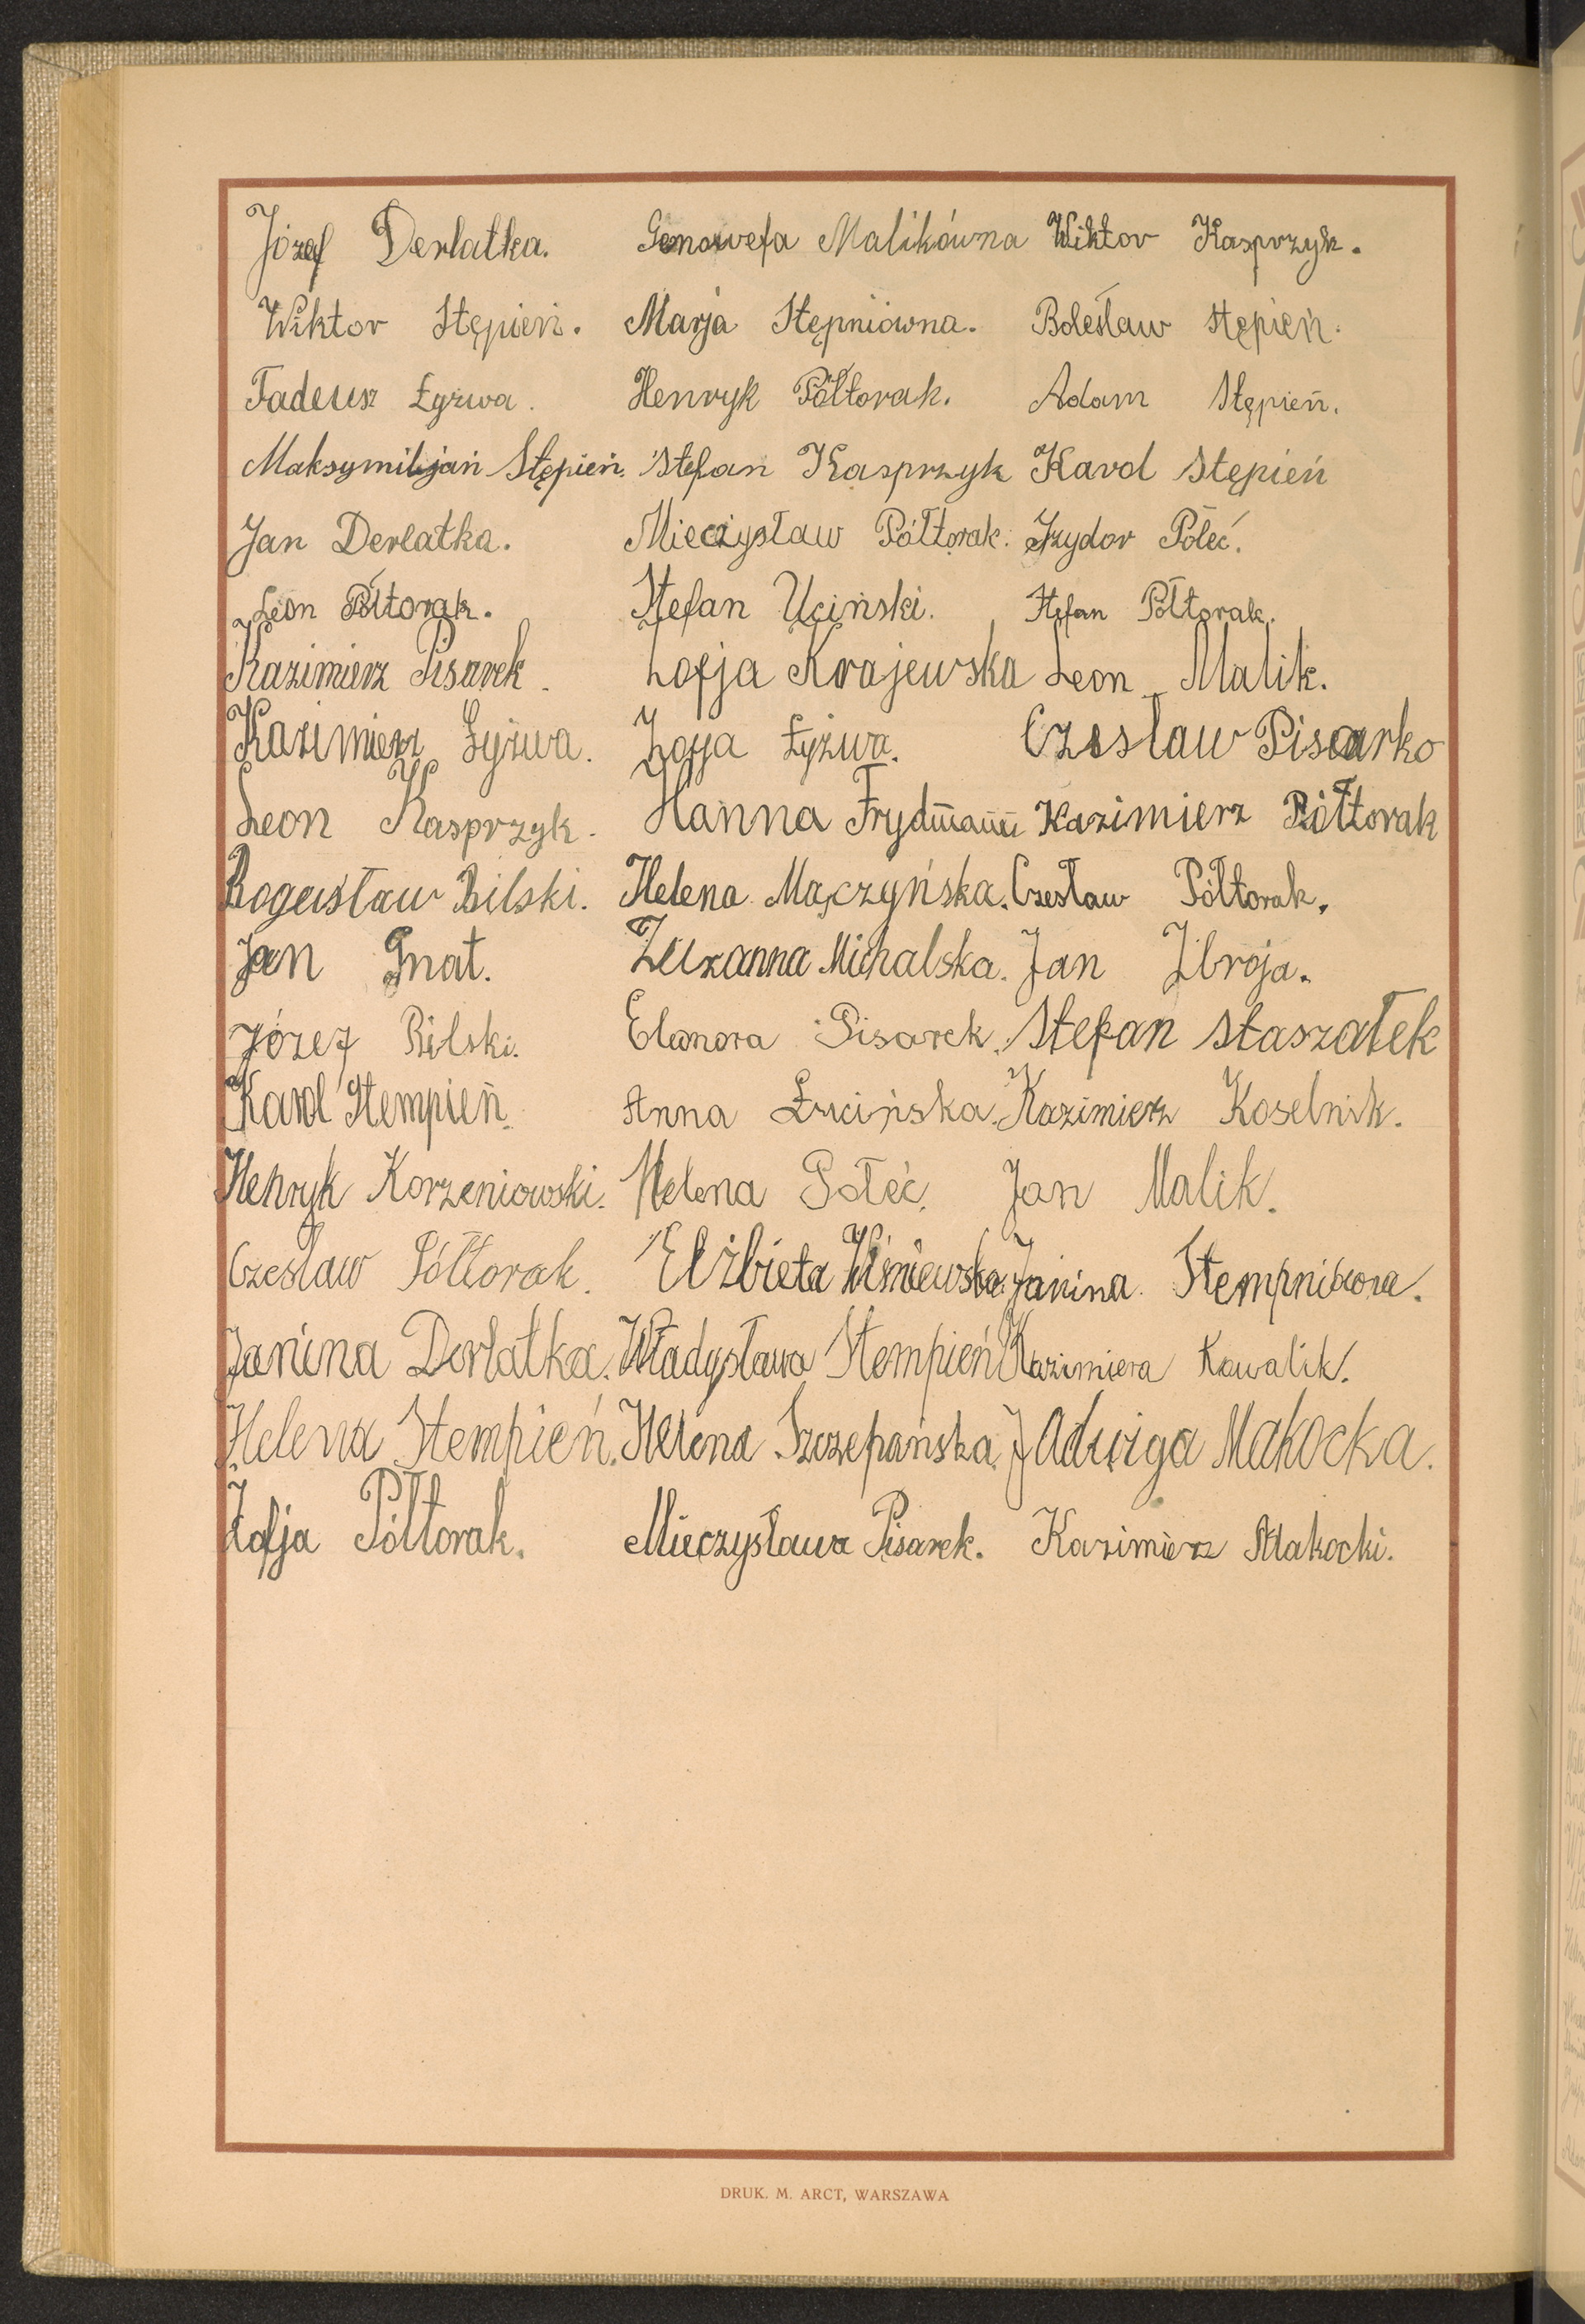 Józef Derlatka. Genowefa Malikówna Wiktor Kasprzyk.
Wiktor Stępień. Marja Stępniówna. Bolesław Stępień.
Tadeusz Łyżwa. Henryk Półtorak. Adam Stępień.
Maksymiljan Stępień. Stefan Kasprzyk Karol Stępień
Jan Derlatka. Mieczysław Półtorak. Izydor Połeć.
Leon Półtorak. Stefan Uciński. Stefan Półtorak.
Kazimierz Pisarek. Zofja Krajewska Leon Malik.
Kazimierz Łyżwa. Zofja Łyżwa. Czesław Pisarko
Leon Kasprzyk. Hanna Frydmann Kazimierz Półtorak
Bogusław Bilski. Helena Mączyńska. Czesław Półtorak.
Jan Gnat. Zuzanna Michalska. Jan Zbroja.
Józef Bilski. Eleonora Pisarek. Stefan Staszałek
Karol Stempień. Anna Łucińska. Kazimierz Koselnik.
Henryk Korzeniowski. Helena Połeć. Jan Malik.
Czesław Półtorak. Elżbieta Wiśniewska. Janina
Janina Derlatka. Władysława Stempień Kazimiera Kawalik.
Helena Stempień. Helena Szczepańska. Jadwiga Makocka.
Zofja Półtorak. Mieczysława Pisarek. Kazimierz Makocki.
DRUK. M. ARCT, WARSZAWA